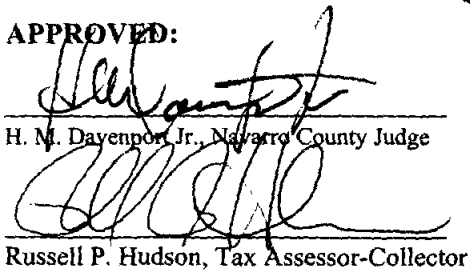 APPROVED:
H. M. Davenport Jr., Navarro County Judge
Russell P. Hudson, Tax Assessor-Collector